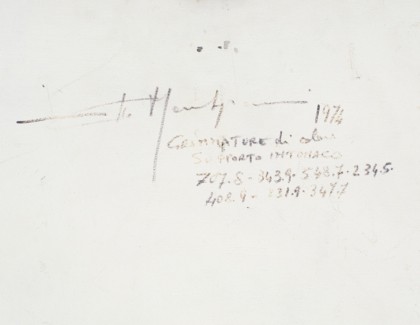 1974
GRAMMATURE di colore
SUPPORTO INTONACO
707.8 - 343.9 - 548.7 - 234.5.
408.9 - 331.9 - 347.7